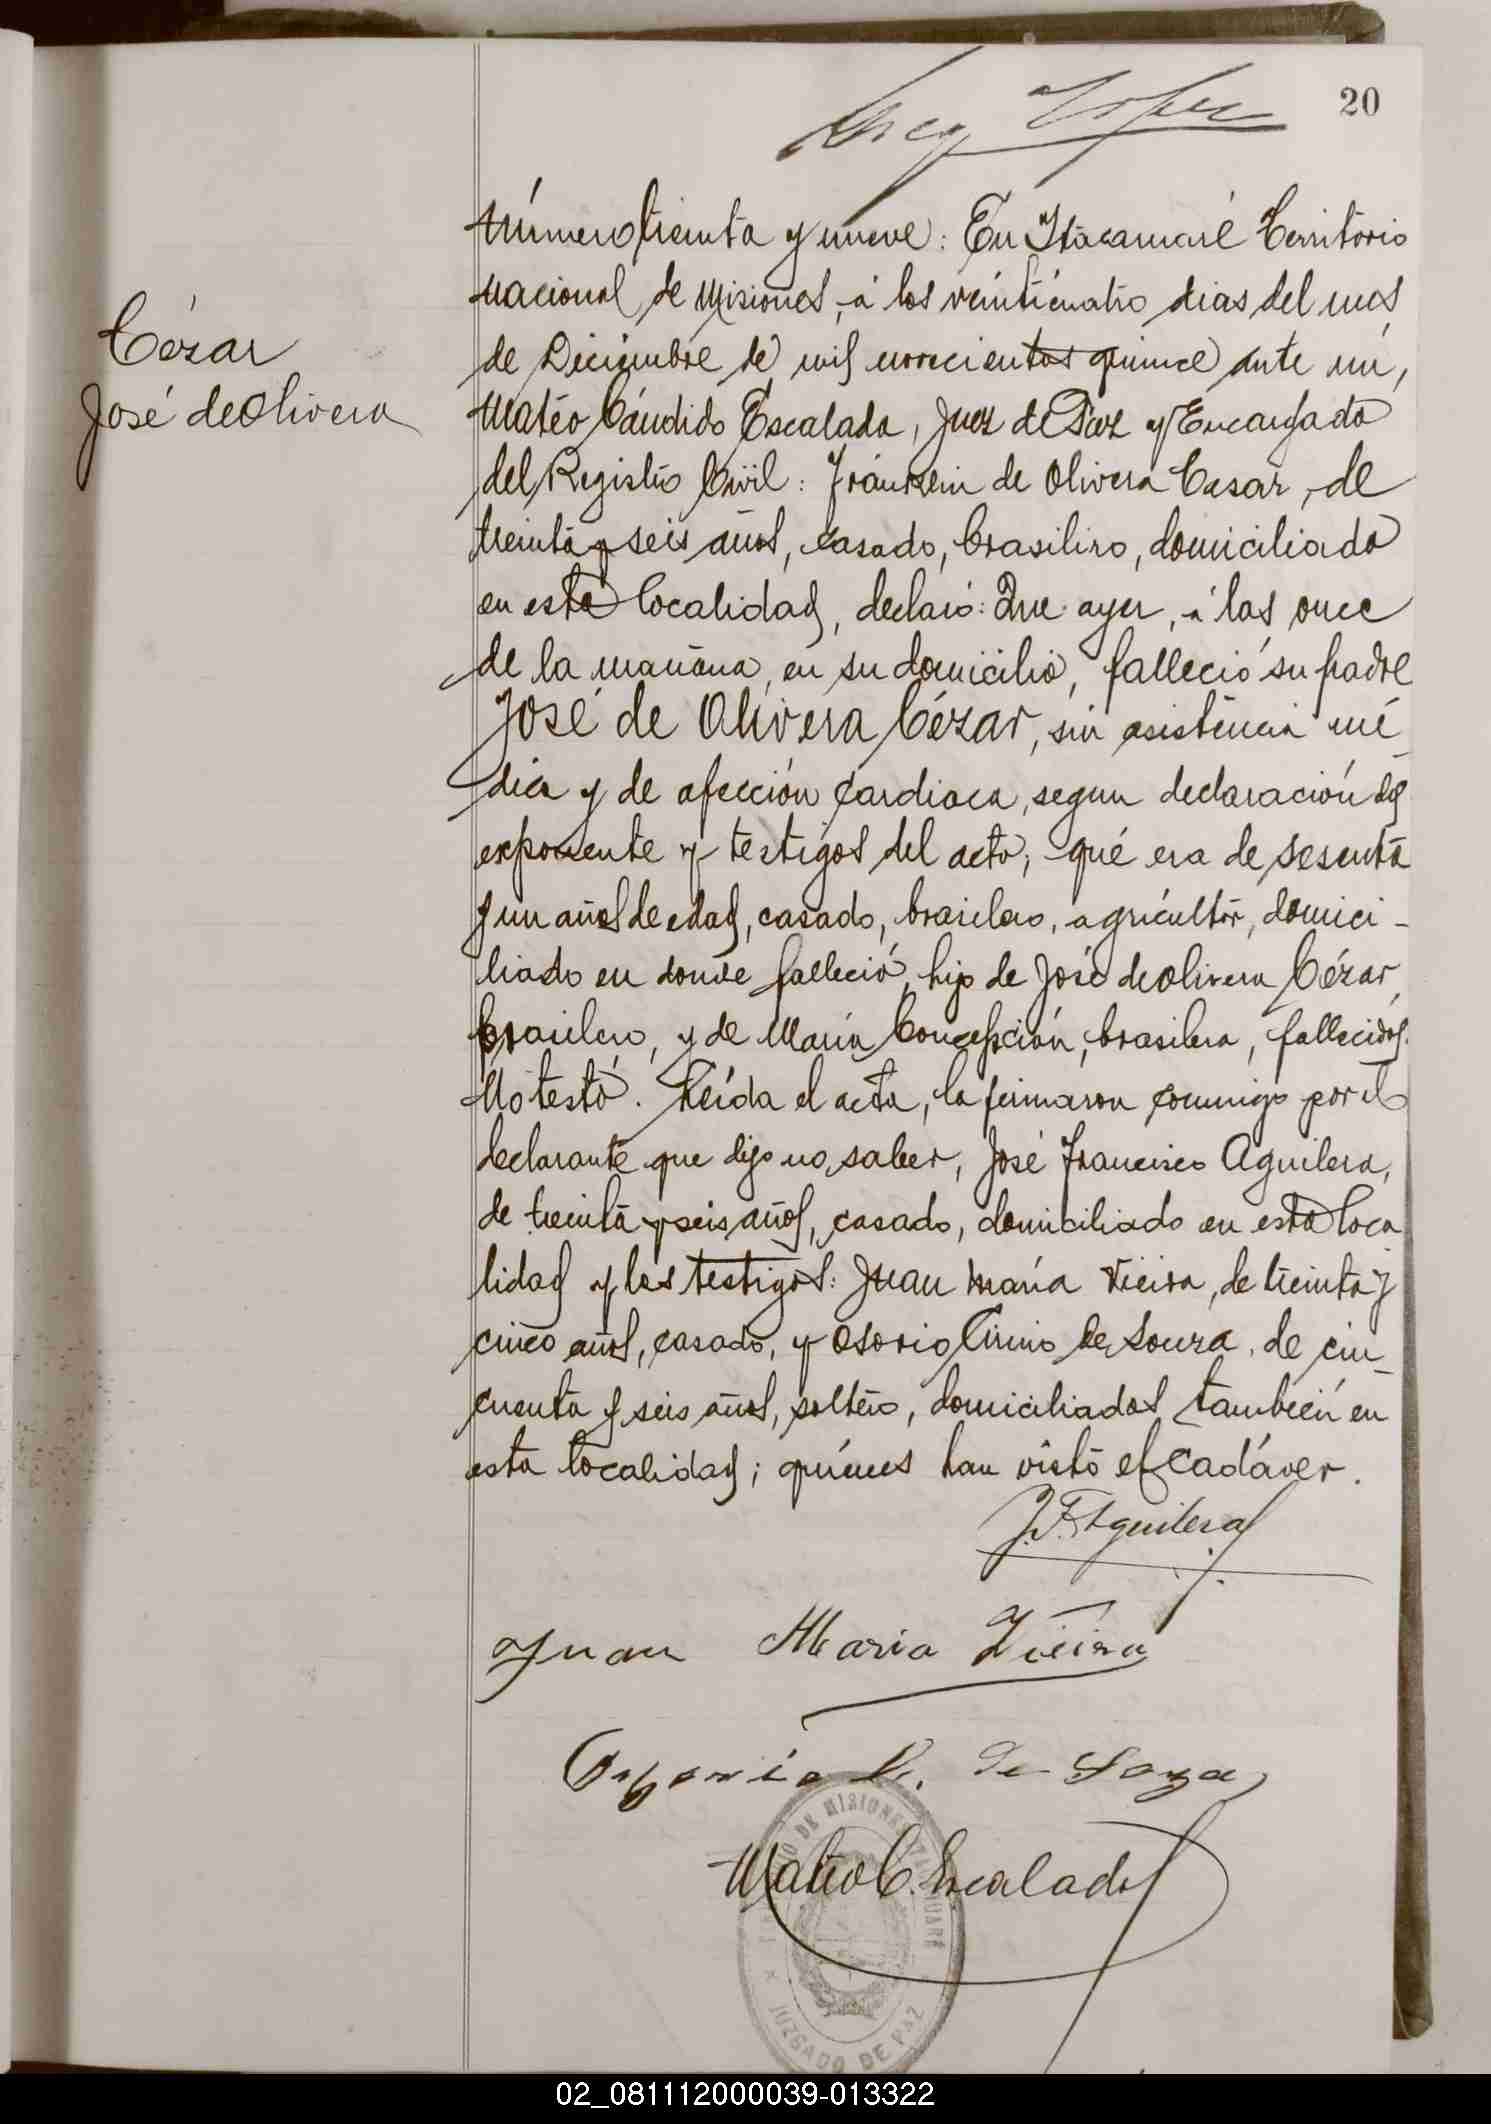 20
Número treinta y nueve: En Itacaruaré Território
nacional de Misiones, á los veinticuatro dias del mes
de Diciembre de mil novecientos quince ante mí,
Matéo Cándido Escalada, Juez de Paz y Encargado
del Registro Civil: de Olivera Cesar, de
treinta y seis años, casado, brasiliro, domiciliado
en esta localidad, declaró: Que ayer, á las once
de la mañana, en su domicilio, falleció su padre
José de Olivera Cézar, sin asistencia mé
dica y de afección cardiaca, segun declaración del
exponente y testigos del acto; qué era de sesenta
y un años de edad, casado, brasilero, agricultor, domici-
liado en donde falleció, hijo de José de Olivera Cézar,
brasilero, y de María Concepción, brasilera, fallecidos.
No testó. Leída el acta, la firmaron conmigo por el
declarante que dijo no saber, José Francisco Aguilera,
de treinta y seis años, casado, domiciliado en esta loca
lidad y los testigos: Juan María Vieira, de treinta y
cinco años, casado, y Osorio de Souza, de cin-
cuenta y seis años, soltero, domiciliados también en
esta localidad; quiénes han visto el cadáver.
Cézar
José de Olivera
J. F. Aguilera
Juan Maria Vieira
de Soza
Matéo C. Escalada
DE MISIONES
JUZGADO DE PAZ
02_081112000039-013322